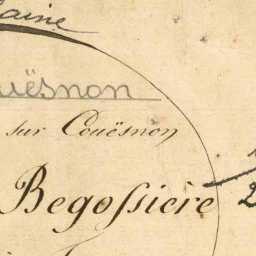 laine
uësnon
sur Couësnon
Begoſsiere
2